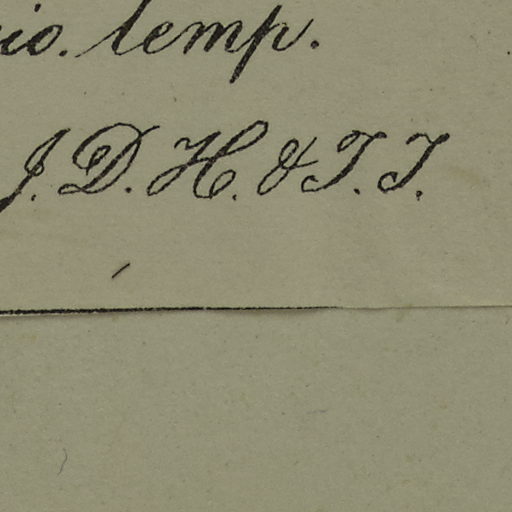 io. temp.
J. D. H. & T. T.